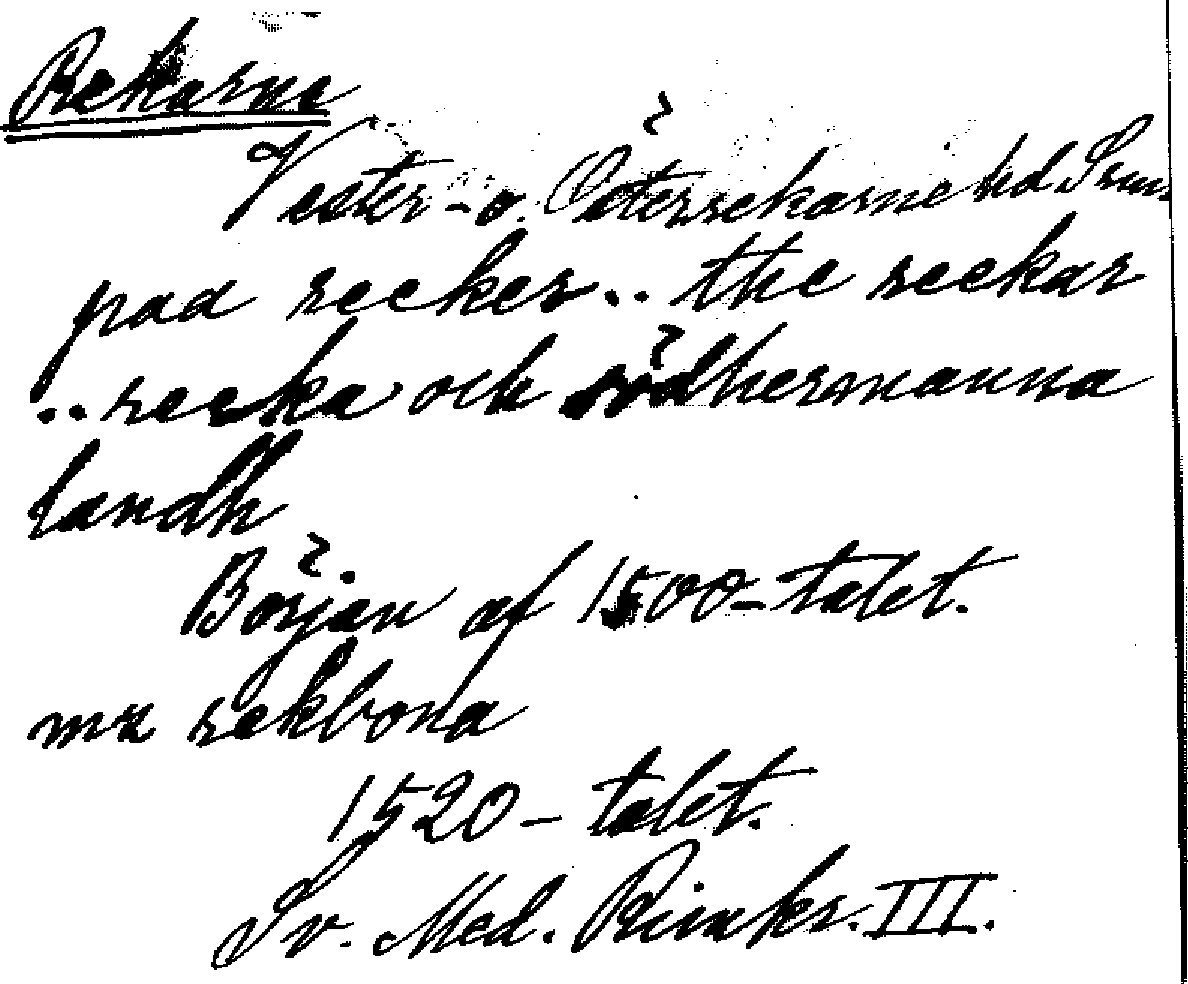 Rekarne
Vester- o. Österrekarne hd Srm.
paa reeker.. the reekar
.. reeka och södhermanna
landh
Början af 1500-talet.
mz rekbona
1520-talet.
Sv. Med. Rimkr. III.